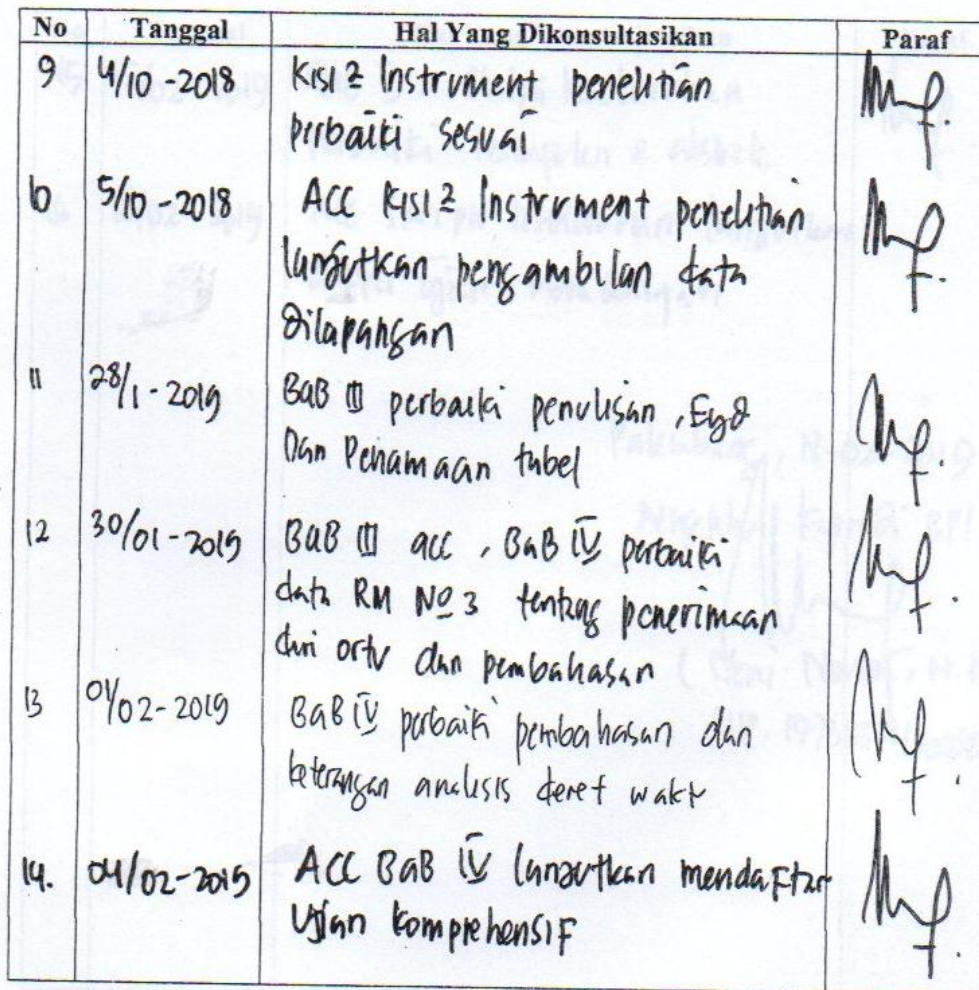 No Tanggal Hal Yang Dikonsultasikan Paraf
9 4/10-2018 Kisi2 Instrument penelitian
perbaiki sesuai
10 5/10-2018 ACC Kisi2 Instrument penelitian
lanjutkan pengambilan data
dilapangan
11 28/1-2019 BaB III perbaiki penulisan, Eyd
Dan Penamaan tabel
12 30/01-2019 BaB III acc, BaB IV perbaiki
data RM No 3 tentang penerimaan
dari ortu dan pembahasan
13 01/02-2019 BaB IV perbaiki pembahasan dan
keterangan analisis deret waktu
14. 04/02-2019 ACC BaB IV lanjutkan mendaftar
Ujian komprehensif